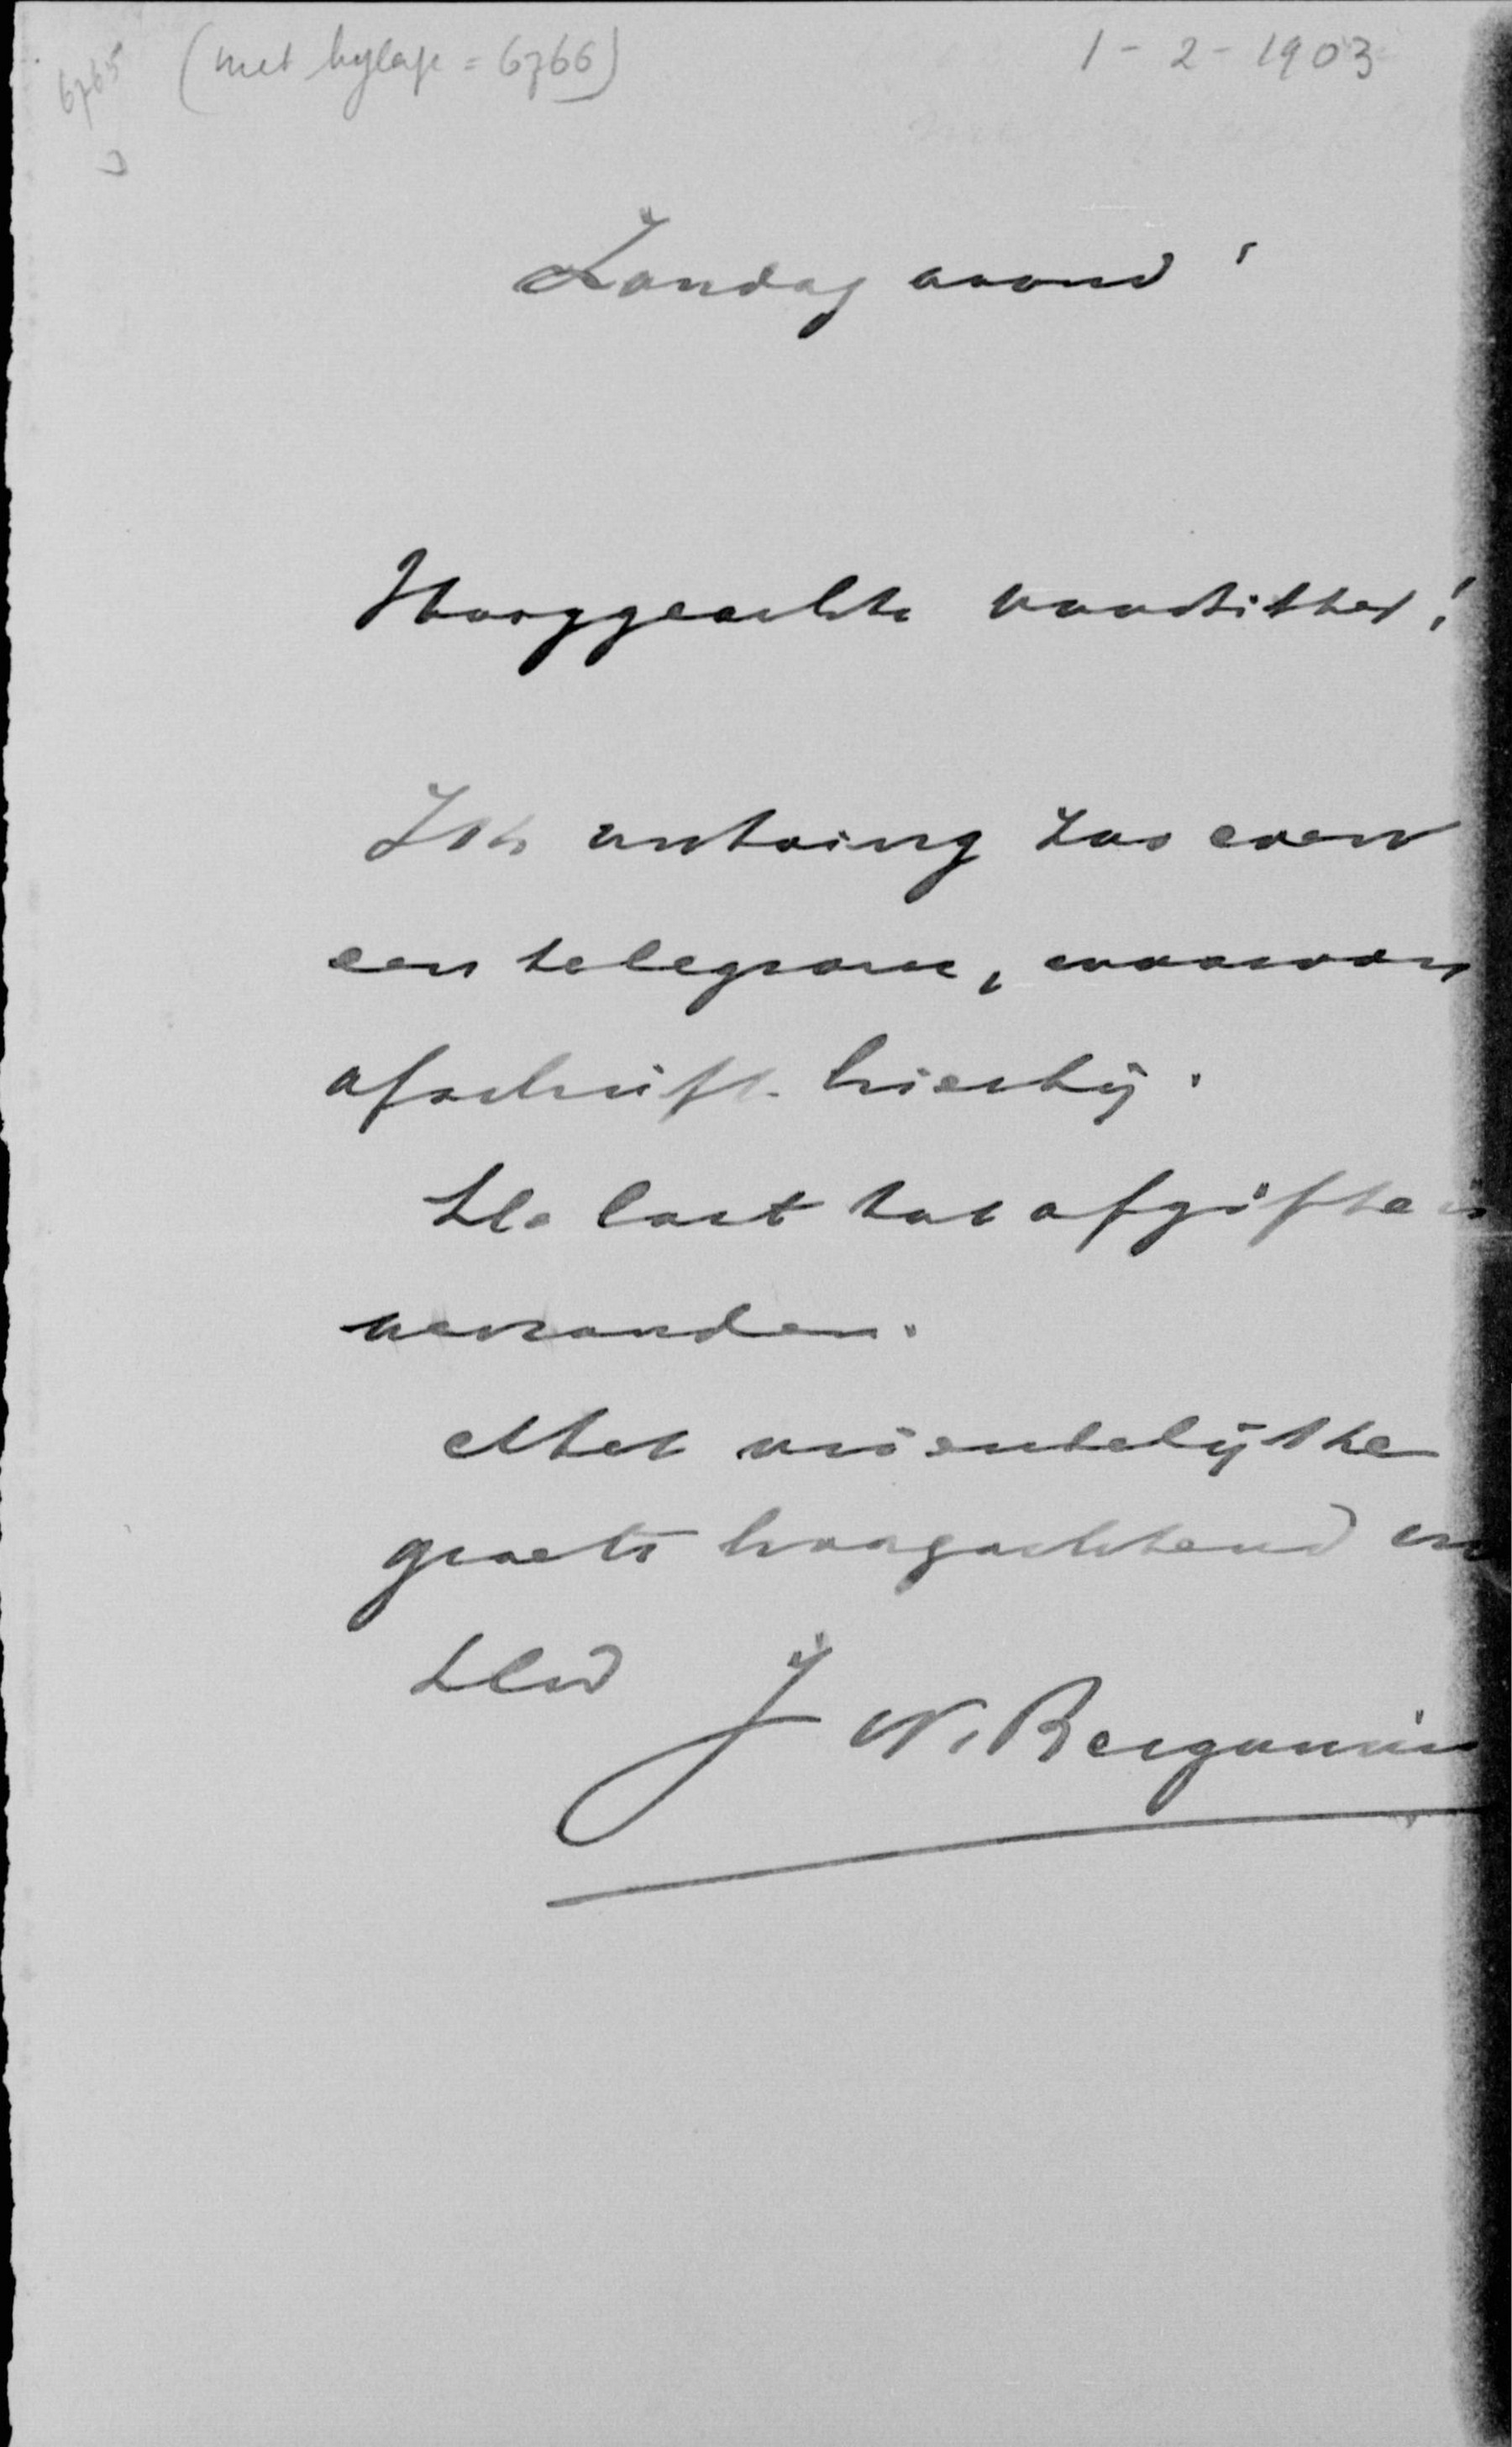 6765
(met bylage = 6766)
1-2-1903
Zondag avond
Hooggeachte voorzitter!
Ik ontving zoo even
een telegram, waarvan
afschrift hierbij.
De last tot afgifte is
verzonden.
Met vriendelijke
groets hoogachtend en
Uw
J W. Bergansius